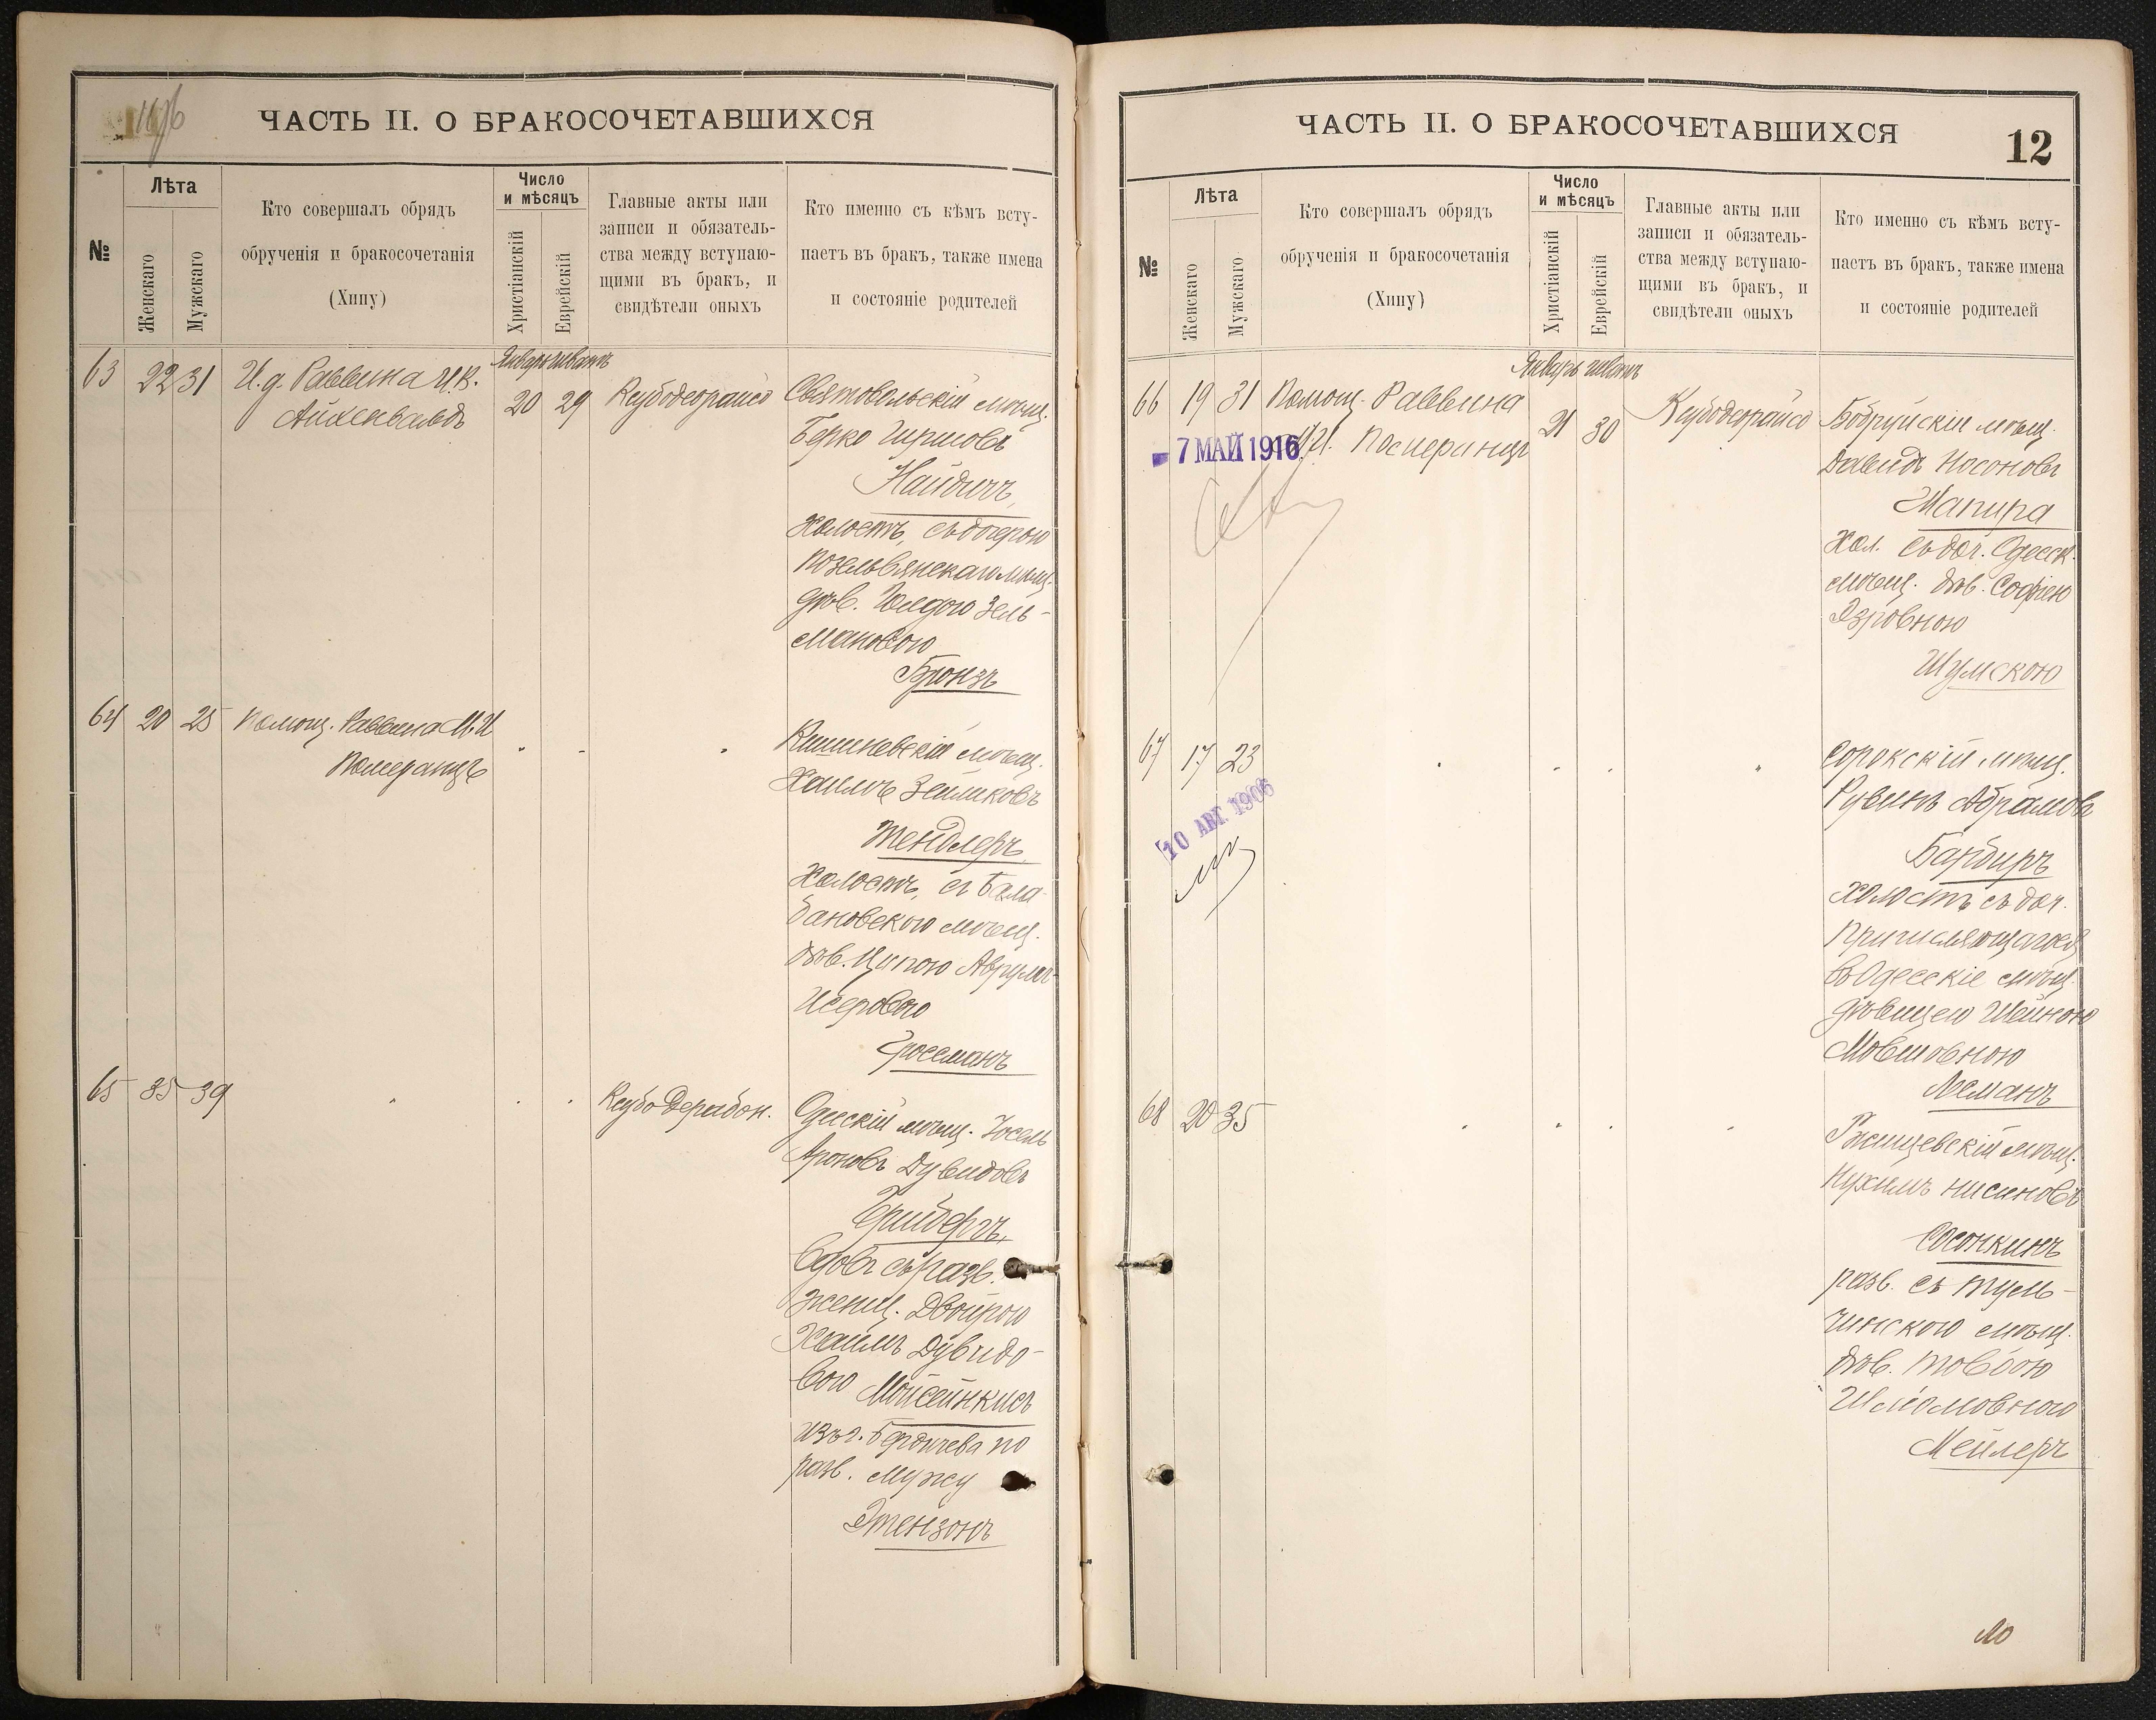 ЧАСТЬ II. О БРАКОСОЧЕТАВШИХСЯ
№
Лѣта
Женскаго
Мужскаго
Кто совершалъ обрядъ
обрученія и бракосочетанія
(Хипу)
Число
и мѣсяцъ
Христіанскій
Еврейскій
Главные акты или
записи и обязатель-
ства между вступаю-
щими въ бракъ, и
свидѣтели оныхъ
Кто именно съ кѣмъ всту-
паетъ въ бракъ, также имена
и состояніе родителей
63 22 31 И.д. Раввина И.К.
Айхенвальдъ
Январь шватъ
20 29
Ксубодеорайсо
Святовольскій мѣщ.
Берко Гиршовъ
Найдичъ,
холостъ, съ дочерью
мѣщ.
дѣв. Зель-
мановою
Бронзъ
64 20 25 Помощ. Раввина М.И
Померанцъ
Кишиневскій мѣщ.
Хаимъ Зейликовъ
Тендлеръ,
Холостъ, съ Бала-
бановскою мѣщ.
дѣв. Ципою Аврумъ-
Исеровою
Гроссманъ
65 35 39
Ксубо Дерабон.
Одесскій мѣщ. Іосель
Ароновъ Дувидовъ
вдовъ съ разв.
женщ. Двойрою
Хаимъ Дувидо-
вою Мойсейнкисъ
изъ г. Бердичева по
разв. мужу
Этензонъ
ЧАСТЬ II. О БРАКОСОЧЕТАВШИХСЯ
12
№
Лѣта
Женскаго
Мужскаго
Кто совершалъ обрядъ
обрученія и бракосочетанія
(Хипу)
Число
и мѣсяцъ
Христіанскій
Еврейскій
Главные акты или
записи и обязатель-
ства между вступаю-
щими въ бракъ, и
свидѣтели оныхъ
Кто именно съ кѣмъ всту-
паетъ въ бракъ, также имена
и состояніе родителей
66 19 31 Помощ. Раввина
М.И. Померанцъ
7 МАЙ 1916
Январь шватъ
21 30
Ксубодеорайсо
Бобруйскій мѣщ.
Давидъ Носоновъ
Шапира
Хол. съ доч. Одесск.
мѣщ. дѣв. Софіею
Эзровною
Шумскою
67 17 23
10 АВГ. 1906
Сорокскій мѣщ.
Рувинъ Абрамовъ
Бандиръ
холостъ съ доч.
причисляющагося
въ Одесскіе мѣщ.
дѣвицею Шейною
Мовшовною
Леманъ
68 20 35
Ржищевскій мѣщ.
Нухимъ Нисиновъ
Сосонкинъ
разв. съ Туль-
чинскою мѣщ.
дѣв. Товбою
Шлемовною
Мейлеръ